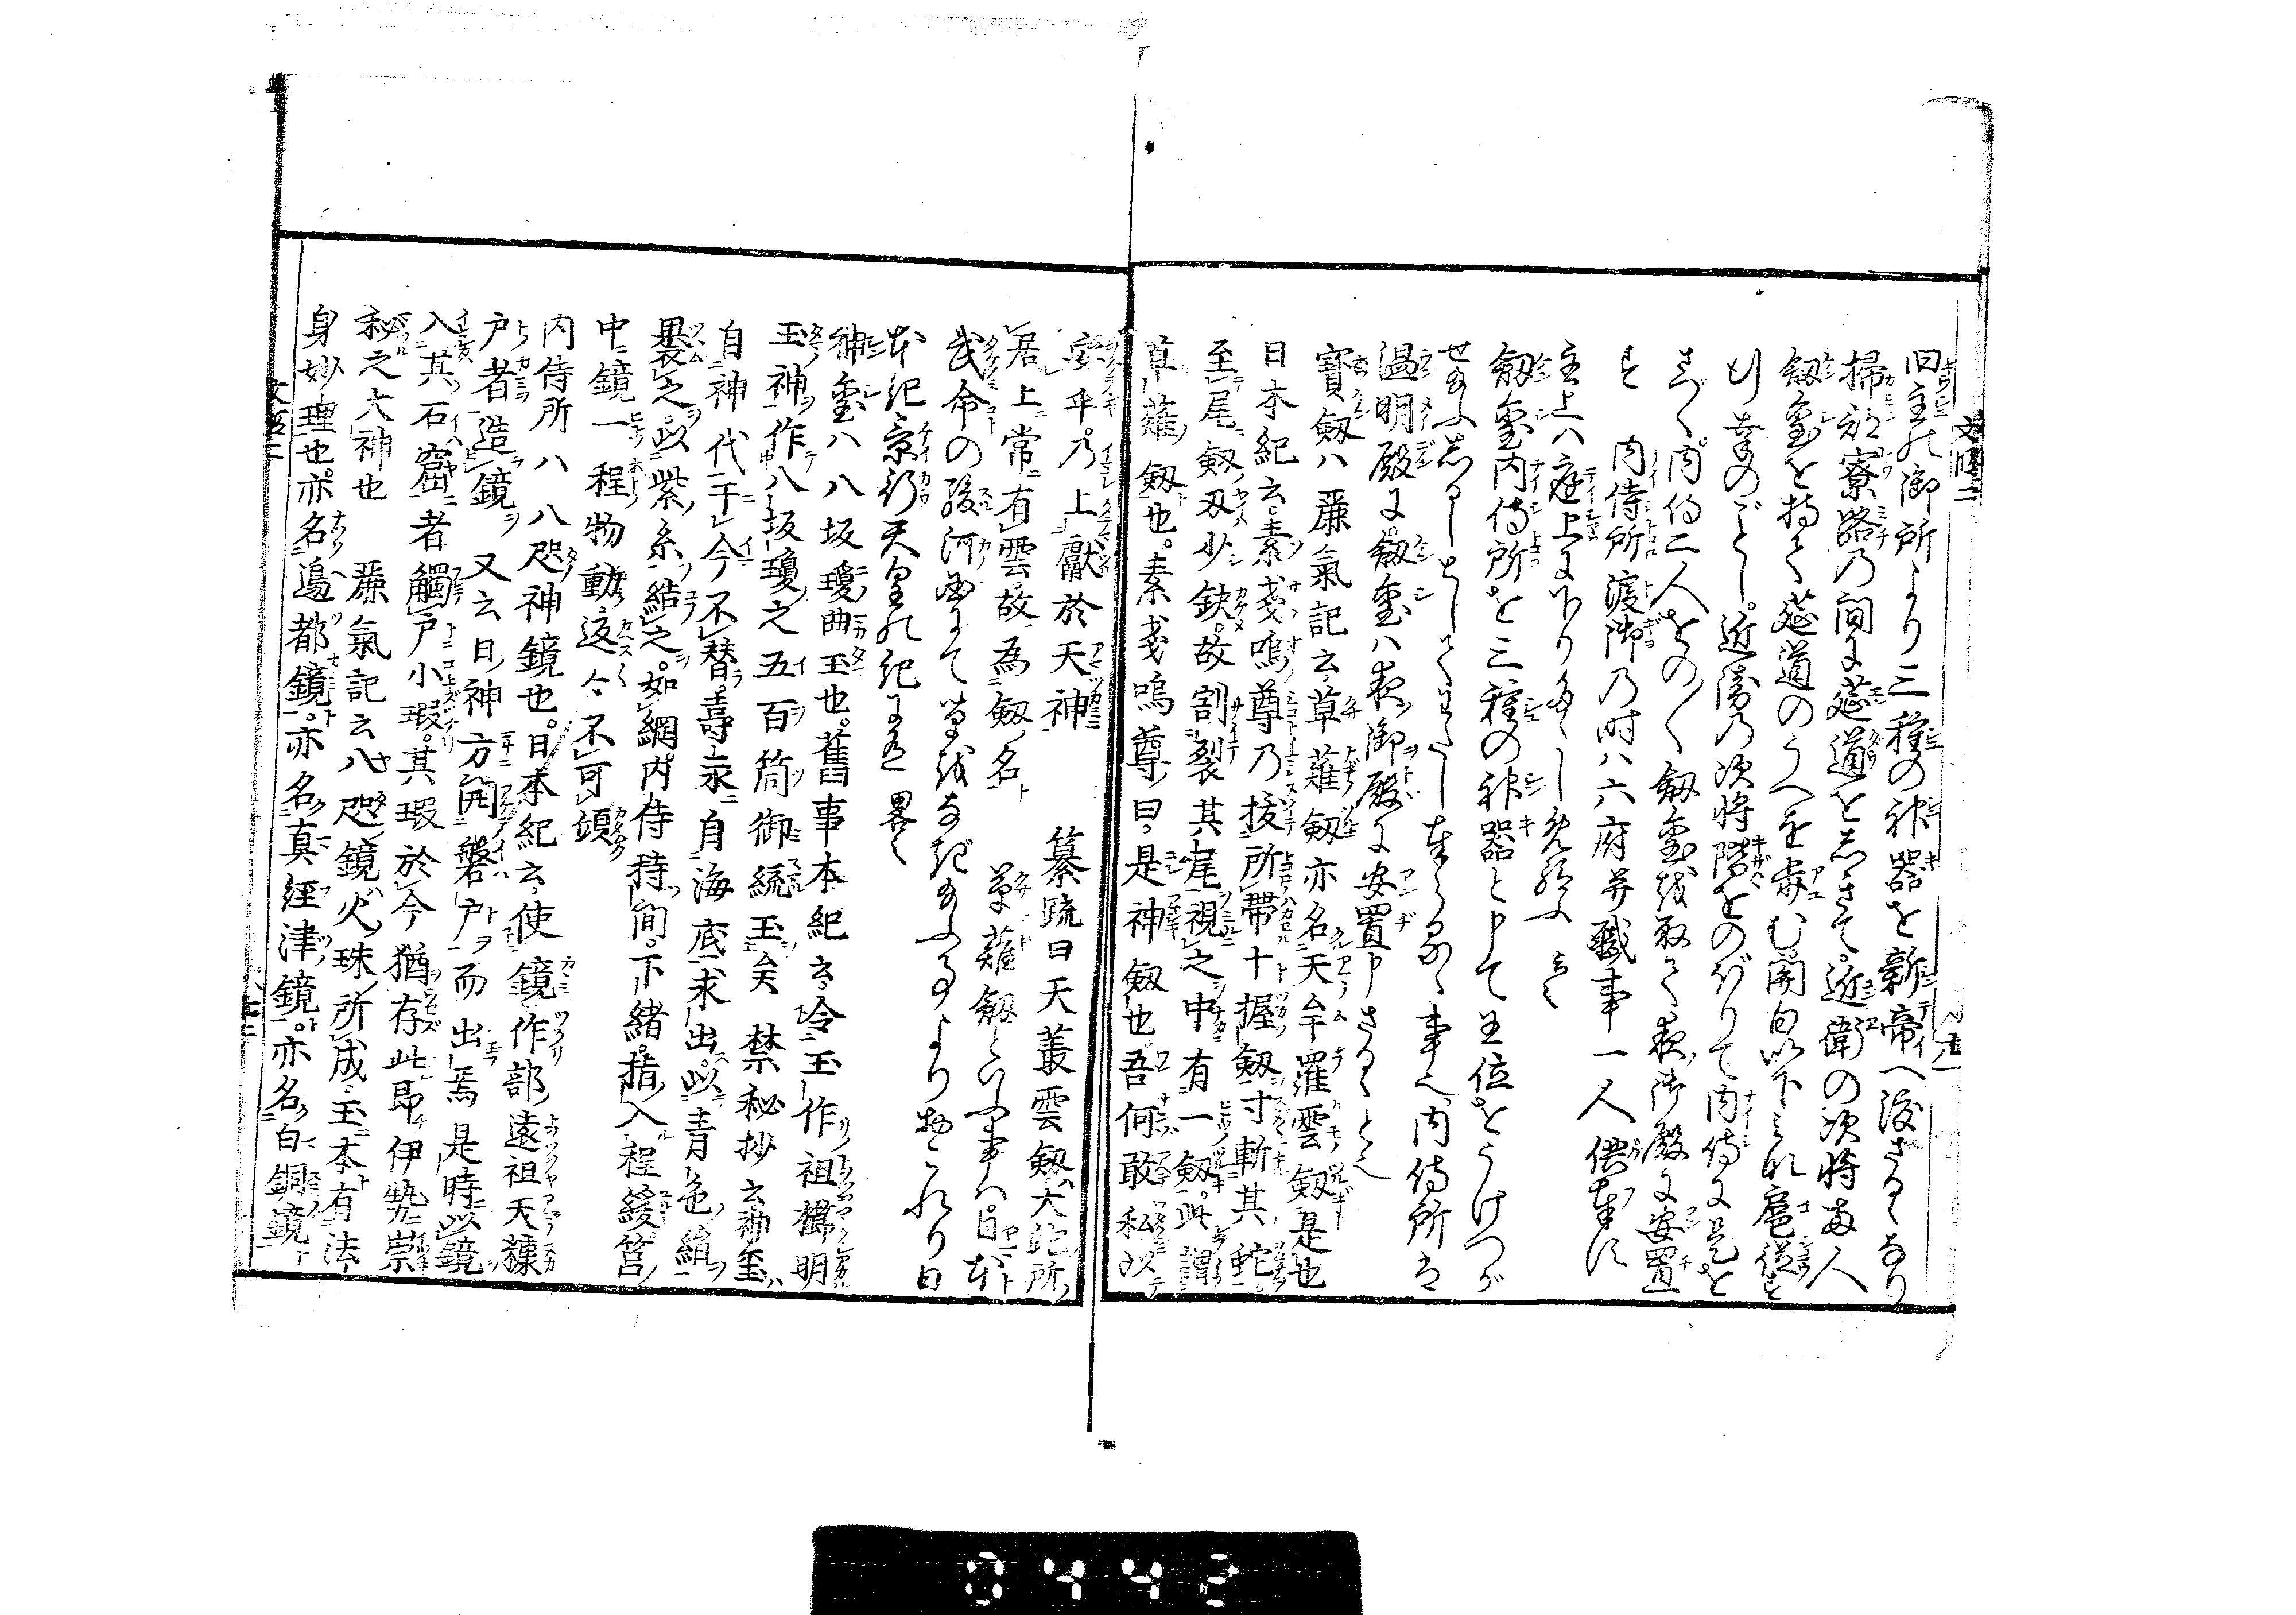 旧主の御所より三種の神器を新帝へ渡さるゝなり
掃部寮路の間に莚道をしきて近衛の次将両人
劔璽を持て莚道のうへを歩む関白以下これに扈従す
行幸のごとし近衛の次将階をのぼりて内侍に是を
さづく内侍二人をの〱劔璽を取て夜御殿に安置
す　内侍所渡御の時ハ六府并職事一人供奉す
主上ハ庭上に下り
劔璽内侍所を三種の神器と申て王位をうけつが
せ給ふしるしとし　事也内侍所は
温明殿に劔璽ハ夜御殿に安置申さるゝと也
寳劔ハ麗氣記云草薙劔亦名天牟羅雲劔是也
日本紀云素戔嗚尊乃抜所帯十握劔寸斬其蛇
至尾劔刃少缺故割裂其尾視之中有一劔此謂
草薙劔也素戔嗚尊曰是神劔也吾何敢私以
安乎乃上獻於天神　纂疏曰天叢雲劔大蛇所
居上常有雲故為劔名　草薙劔といふ事ハ日本
武命の駿河國にて　よりおこれり日
本紀景行天皇の紀に　畧之
神璽ハ八坂瓊曲玉也舊事本紀云令玉作祖櫛明
玉神作八坂瓊之五百筒御統玉矣　禁秘抄云神璽
自神代于今不替壽永自海底求出以青色絹
裹之以紫糸結之如網内侍持間下緒指入程緩筥
中鏡一程物動返々不可頃
内侍所ハ八咫神鏡也日本紀云使鏡作部遠祖天糠
戸者造鏡　又云日神方開磐戸而出焉是時以鏡
入其石窟者觸戸小瑕其瑕於今猶存此即伊勢崇
秘之大神也　麗氣記云八咫鏡火珠所成玉本有法
身妙理也亦名邊都鏡亦名真経津鏡亦名白銅鏡
0442